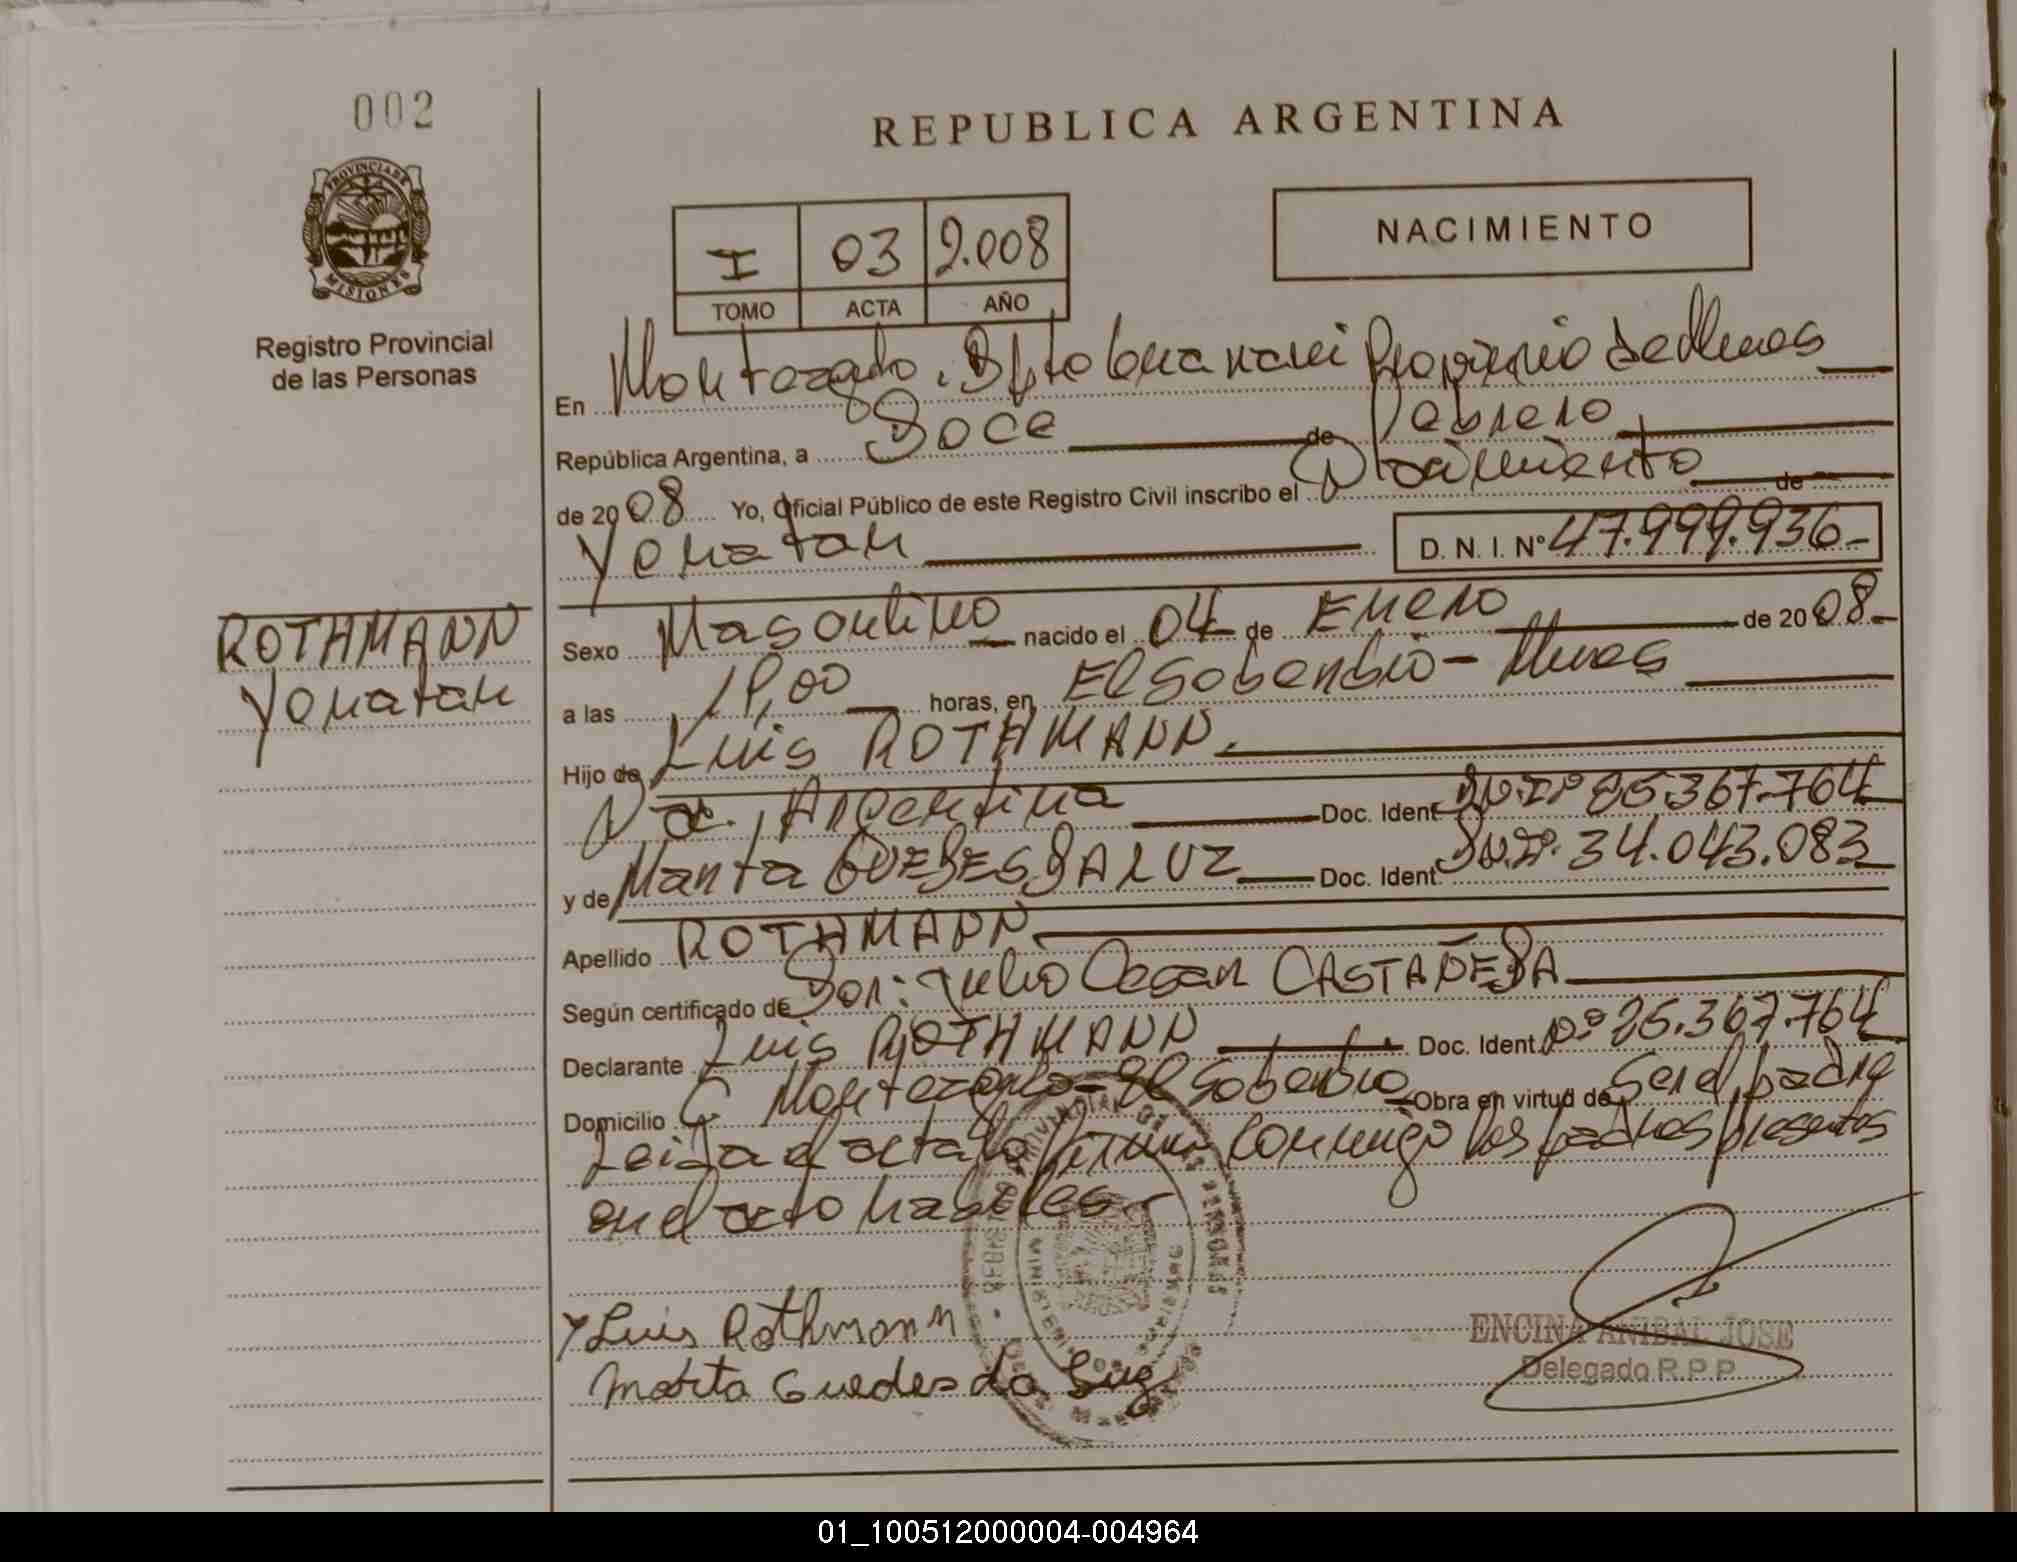 002
REPUBLICA ARGENTINA
PROVINCIA DE
MISIONES
Registro Provincial
de las Personas
I 03 2.008
TOMO ACTA AÑO
NACIMIENTO
En Monteagudo. Dpto Guaraní Provincia de Mnes
República Argentina, a Doce de Febrero
de 2008 Yo, Oficial Público de este Registro Civil inscribo el Nacimiento de
Yonatan D. N. I. Nº 47.999.936-
ROTHMANN
Yonatan
Sexo Masculino nacido el 04 de Enero de 2008-
a las 19,00 horas, en El Soberbio - Mnes
Hijo de Luis ROTHMANN.
Nac. Argentina Doc. Ident D.N.I Nº 25.367.764
y de Marta GUEDES DA LUZ Doc. Ident. D.N.I. 34.043.083
Apellido ROTHMANN
Según certificado de Dor: Julio Cesar CASTAÑEDA
Declarante Luis ROTHMANN Doc. Ident. Nº 25.367.764
Domicilio C Monteagudo - El Soberbio Obra en virtud de Ser el padre
Leida el acta la firman conmigo los padres presentes
en el acto habiles.-
Luis Rothmann
Marta Guedes da Luz
ENCINA ANIBAL JOSE
Delegado R.P.P
01_100512000004-004964